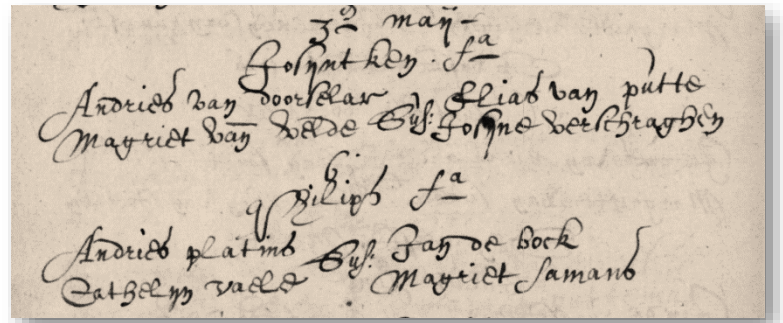 3ᵃ maij
Josyntken . fᵃ
Andries van doorselar Sus: Elias van putte
Magriet van velde Josyne verschraghen
6
Philips fᵃ
Andries platins Sus: Jan de bock
Cathelyn vaele Magriet samans